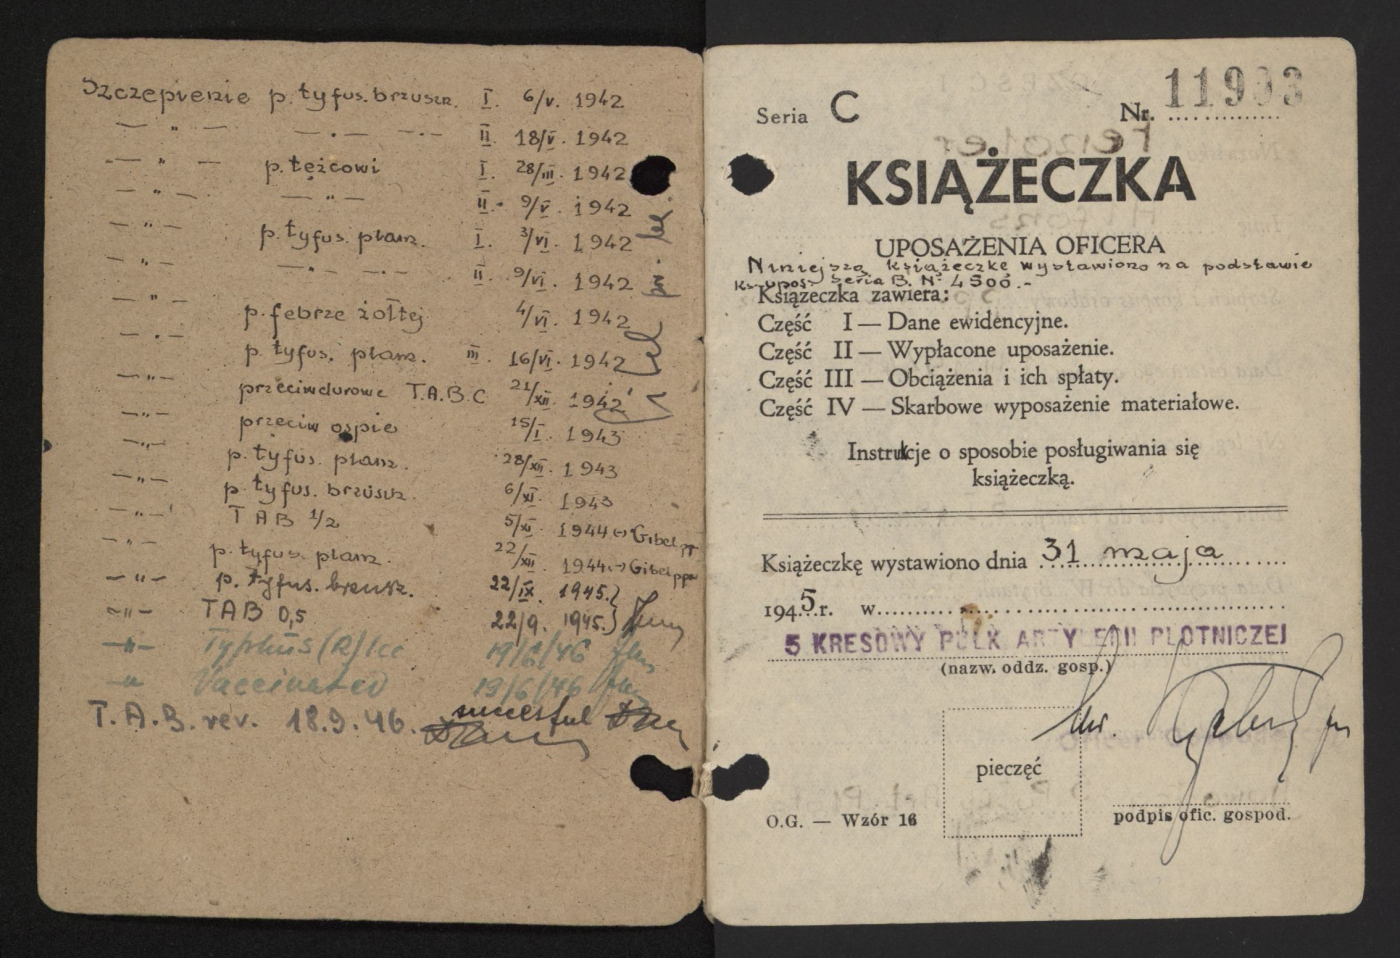 Szczepienie p. tyfus. brzuszn. I. 6/V. 1942
— " — — " — — " — II 18/V. 1942
— " — p. tężcowi I. 28/III. 1942
— " — — " — II. 9/V. 1942
— " — p. tyfus. plam. I. 3/VI. 1942
— " — — " — — " — II. 9/VI. 1942
— " — p. febrze żółtej 4/VI. 1942
— " — p. tyfus. plam. III. 16/VI. 1942
— " — przeciwdurowe T.A.B.C 21/XII. 1942
— " — przeciw ospie 15/I. 1943
— " — p. tyfus. plam. 28/XII. 1943
— " — p. tyfus. brzuszn. 6/XI. 1943
— " — T A B 1/2 5/XI. 1944
— " — p. tyfus. plam. 22/XII. 1944
— " — p. tyfus. brzusz. 22/IX. 1945.
— " — TAB 0,5 22/9. 1945.
— " — Typhus (R) 1cc 19/6/46
— " — Vaccinated 19/6/46
succesful
T.A.B. rev. 18.9.46.
Seria C Nr. 11903
KSIĄŻECZKA
UPOSAŻENIA OFICERA
Niniejszą książeczkę wystawiono na podstawie
ks. upos. seria B. Nr 4500.-
Książeczka zawiera:
Część I — Dane ewidencyjne.
Część II — Wypłacone uposażenie.
Część III — Obciążenia i ich spłaty.
Część IV — Skarbowe wyposażenie materiałowe.
Instrukcje o sposobie posługiwania się
książeczką.
Książeczkę wystawiono dnia 31 maja
1945 r. w
5 KRESOWY PUŁK ARTYLERII PLOTNICZEJ
(nazw. oddz. gosp.)
pieczęć
O.G. — Wzór 16
podpis ofic. gospod.